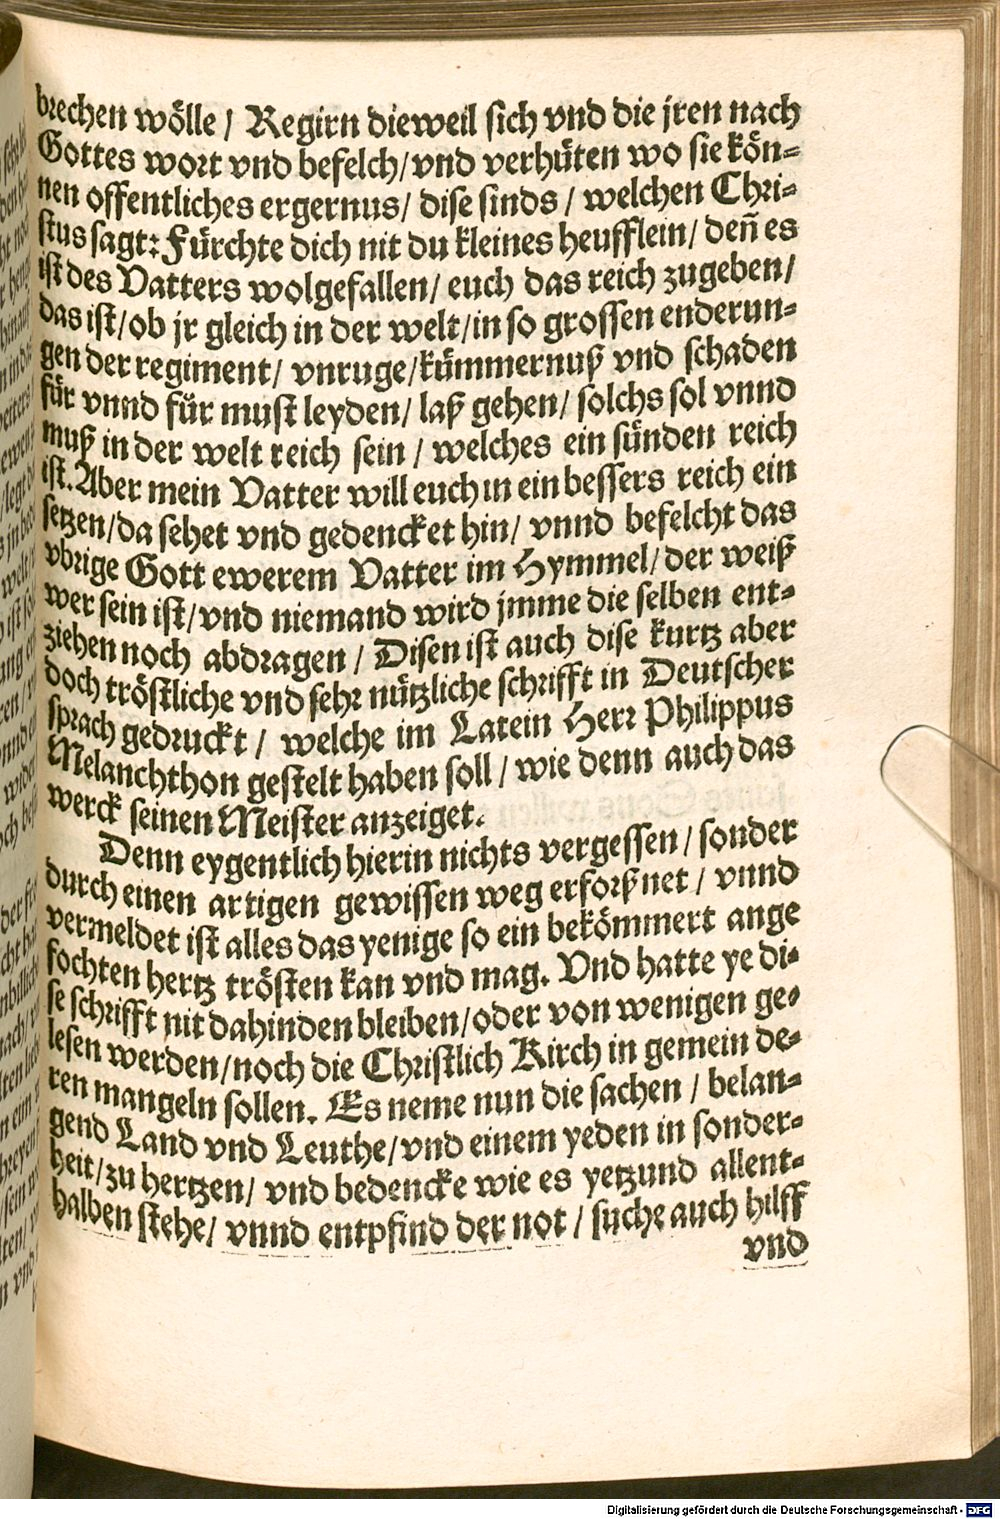 brechen wölle / Regirn dieweil sich vnd die jren nach
Gottes wort vnd befelch/vnd verhüten wo sie kön-
nen offentliches ergernus/ dise sinds / welchen Chri-
stus sagt: Fürchte dich nit du kleines heufflein/ deñ es
ist des Vatters wolgefallen/ euch das reich zugeben/
das ist/ob jr gleich in der welt/in so grossen enderun-
gen der regiment/ vnruge/kümmernuß vnd schaden
für vnnd für must leyden/ laß gehen/ solchs sol vnnd
muß in der welt reich sein / welches ein sünden reich
ist. Aber mein Vatter will euch in ein bessers reich ein
setzen/da sehet vnd gedencket hin/ vnnd befelcht das
vbrige Gott ewerem Vatter im Hymmel/der weiß
wer sein ist/vnd niemand wird jmme die selben ent-
ziehen noch abdragen / Disen ist auch dise kurtz aber
doch tröstliche vnd sehr nützliche schrifft in Deutscher
sprach gedruckt / welche im Latein Herr Philippus
Melanchthon gestelt haben soll / wie denn auch das
werck seinen Meister anzeiget.
Denn eygentlich hierin nichts vergessen / sonder
durch einen artigen gewissen weg erforßnet / vnnd
vermeldet ist alles das yenige so ein bekömmert ange
fochten hertz trösten kan vnd mag. Vnd hatte ye di-
se schrifft nit dahinden bleiben/oder von wenigen ge-
lesen werden/noch die Christlich Kirch in gemein de-
ren mangeln sollen. Es neme nun die sachen / belan-
gend Land vnd Leuthe/vnd einem yeden in sonder-
heit/zu hertzen/ vnd bedencke wie es yetzund allent-
halben stehe/ vnnd entpfind der not / suche auch hilff
vnd
Digitalisierung gefördert durch die Deutsche Forschungsgemeinschaft - DFG